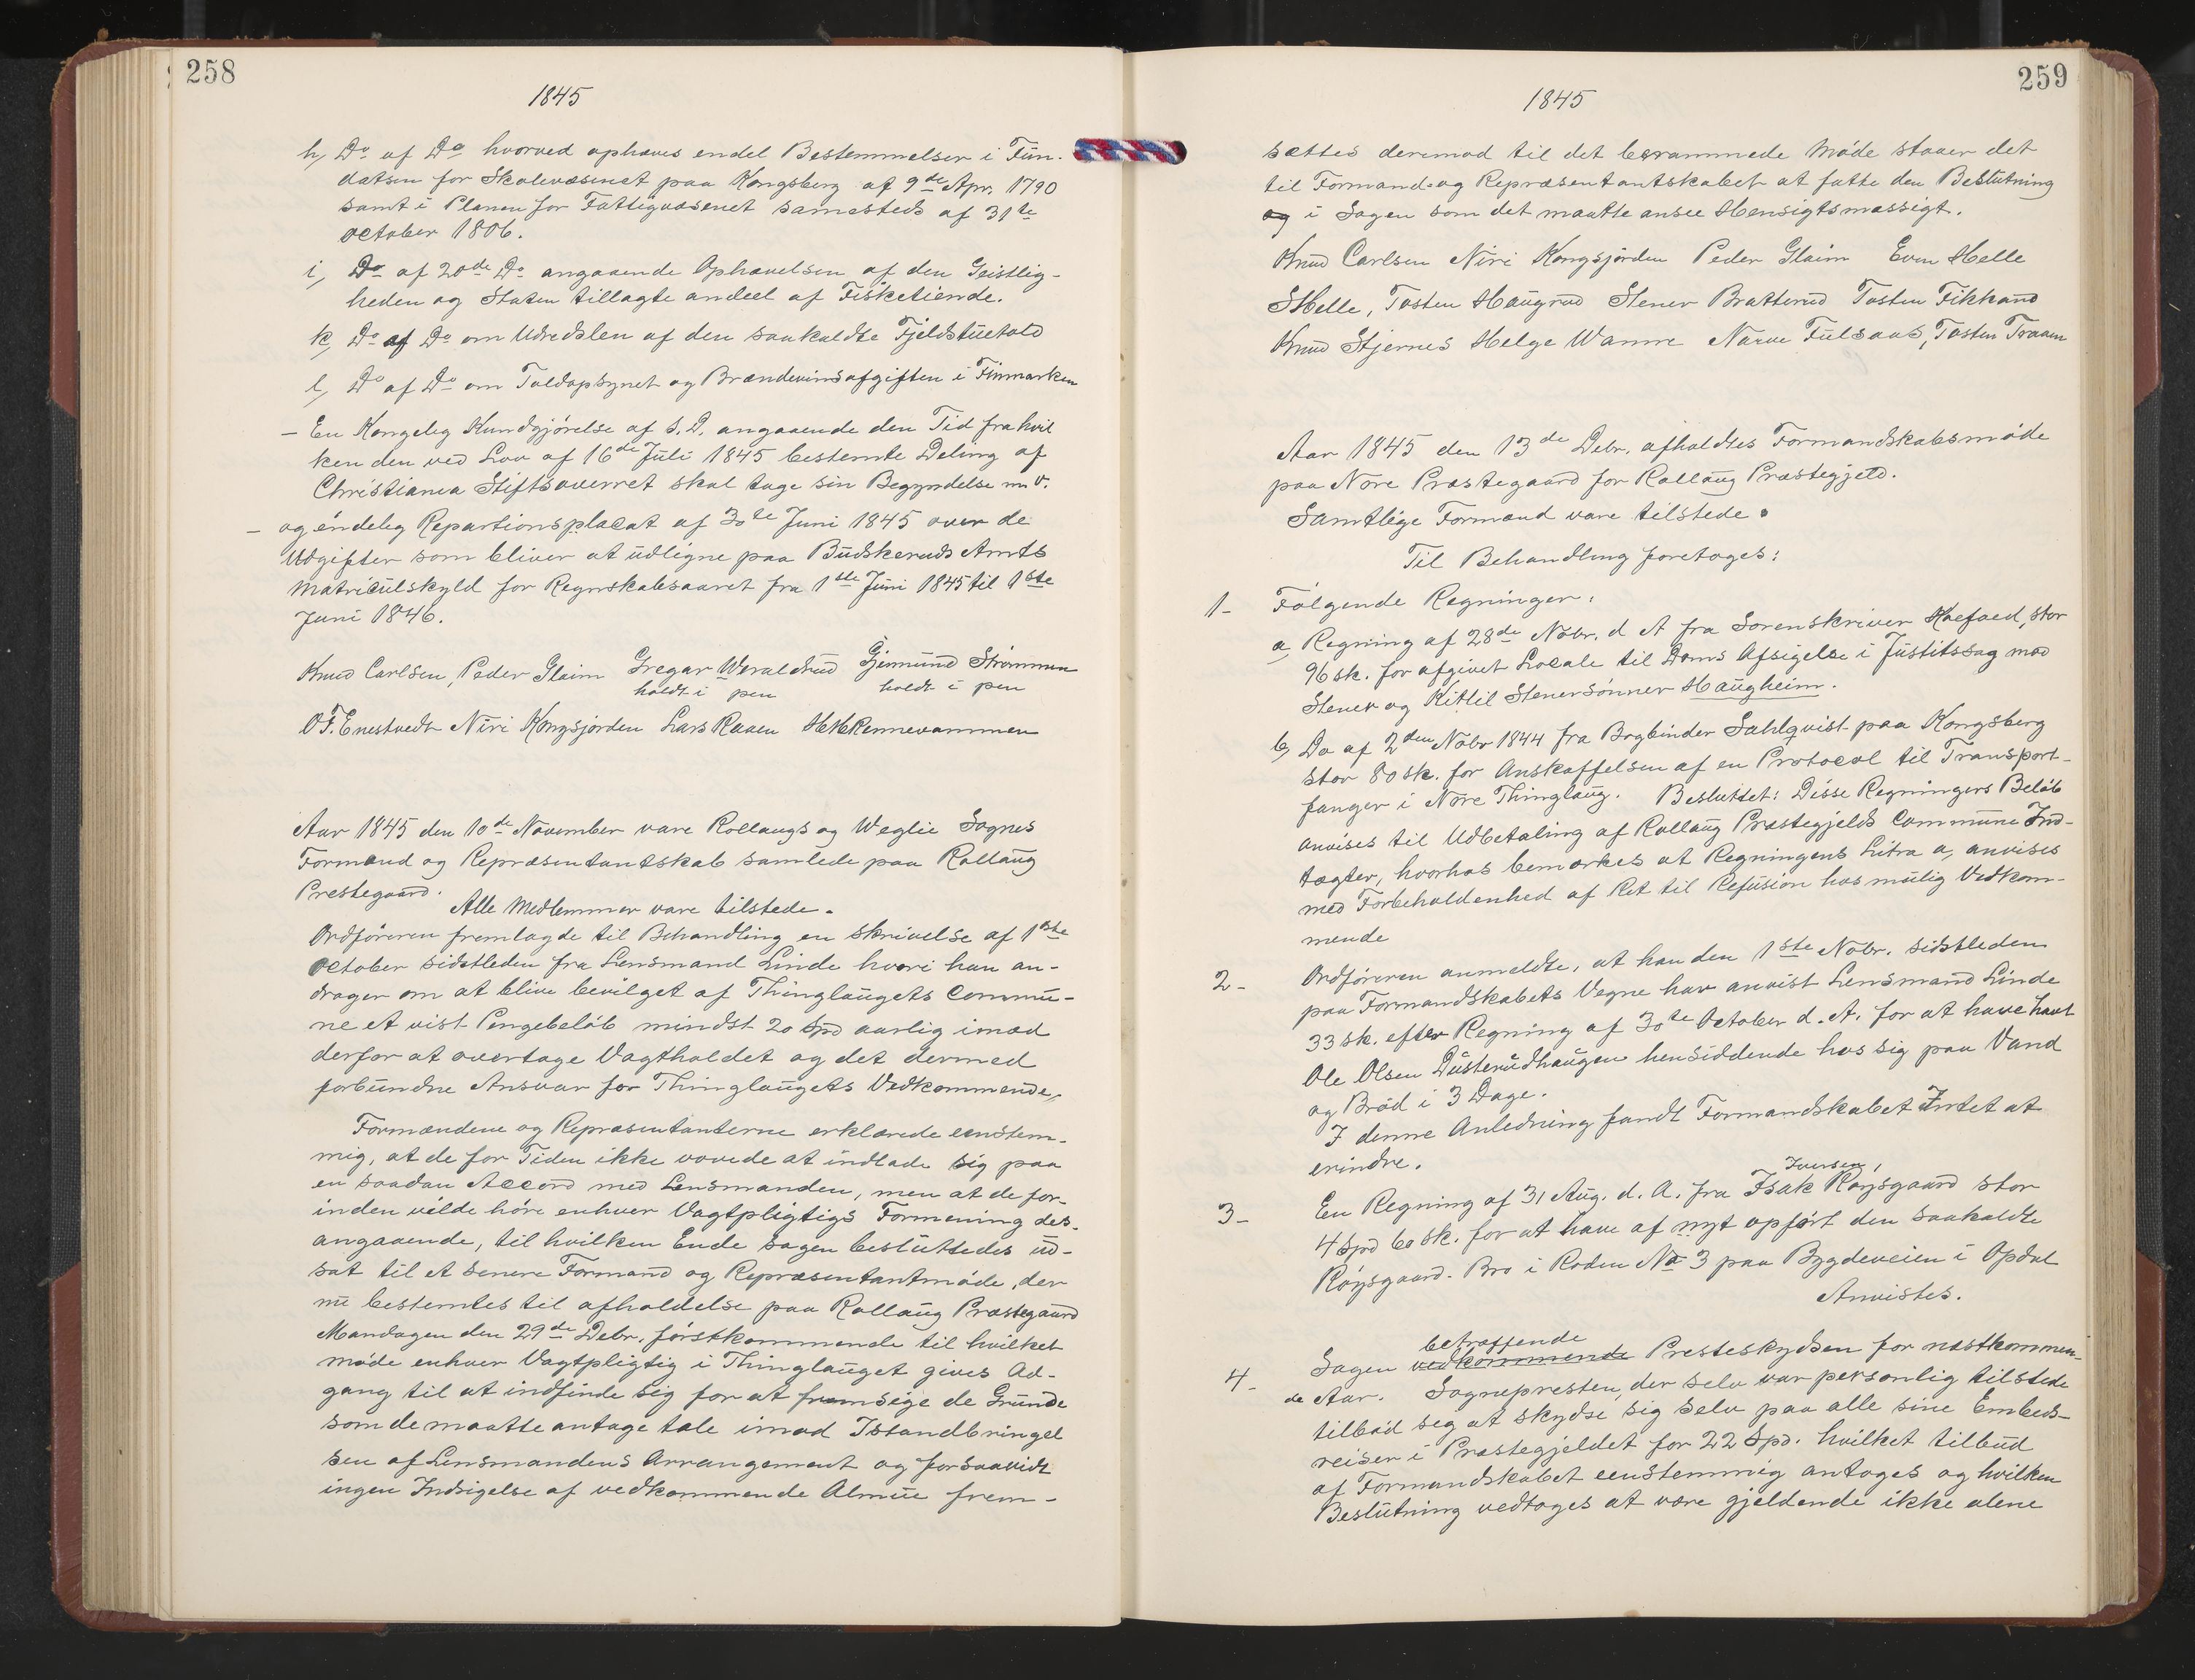 258
1845
h, Do af Do hvorved ophæves endel Bestemmelser i Fun-
datsen for Skolevæsenet paa Kongsberg af 9de Apr. 1790
samt i Planen for Fattigvæsenet samesteds af 31te
October 1806.
i, Do af 20de Do angaaende Ophævelsen af den Geistlig-
heden og Staten tillagte andeel af Fisketiende.
k, Do af Do om Udredslen af den saakaldte Fjeldstuetold
l, Do af Do om Toldopsynet og Brændevinsafgiften i Finmarken
- En Kongelig Kundgjørelse af S.D. angaaende den Tid fra hvil
ken den ved Lov af 16de Juli 1845 bestemte Deling af
Christiania Stiftsoverret skal tage sin Begyndelse m.v.
- og endelig Repartionsplacat af 30te Juni 1845 over de
Udgifter som bliver at udligne paa Budskeruds Amts
Matriculskyld for Regnskabsaaret fra 1ste Juni 1845 til 1ste
Juni 1846.
Knud Carlsen, Peder Glaim Gregar Woraldrud Gjermund Strømmen
holdt i pen holdt i pen
O.T. Enestvedt Niri Kongsjorden Lars Raaen HHKennevammen
Aar 1845 den 10de November vare Rollaugs og Weglie Sognes
Formænd og Repræsentantskab samlede paa Rollaug
Prestegaard.
Alle Medlemmer vare tilstede.
Ordføreren fremlagde til Behandling en skrivelse af 1ste
October sidstleden fra Lensmand Linde hvori han an-
drager om at blive bevilget af Thinglaugets Commu-
ne et vist Pengebeløb mindst 20 Spd aarlig imod
derfor at overtage Vagtholdet og det dermed
forbundne Ansvar for Thinglaugets Vedkommende,
Formændene og Repræsentanterne erklærede eenstem-
mig, at de for Tiden ikke vovede at indlade sig paa
en saadan Accord med Lensmanden, men at de for-
inden vilde høre enhver Vagtpligtigs Formening des-
angaaende, til hvilken Ende sagen besluttedes ud-
sat til et senere Formand og Repræsentantmøde, der
nu bestemtes til afholdelse paa Rollaug Præstegaard
Mandagen den 29de Debr. førstkommende til hvilket
møde enhver Vagtpligtig i Thinglauget gives Ad-
gang til at indfinde sig for at fremsige de Grunde
som de maatte antage tale imod Istandbringel
sen af Lensmandens Arrangement og forsaavidt
ingen Indsigelse af vedkommende Almue frem-
259
1845
sættes deremod til det berammede Møde staaer det
til Formand- og Repræsentantskabet at fatte den Beslutning
og i Sagen som det maatte ansee Hensigtsmæssigt.
Knud Carlsen Niri Kongsjorden Peder Glaim Even Helle
SHelle, Tosten Haugrud Stener Bratterud Tosten Fikkand
Knud Stjernes Helge Wamre Narve Fulsaas, Tosten Traaen
Aar 1845 den 13de Debr. afholdtes Formandskabsmøde
paa Nore Præstegaard for Rollaug Præstegjeld.
Samtlige Formænd vare tilstede.
Til Behandling foretoges:
1- Følgende Regninger:
a, Regning af 28de Nobr. d A fra Sorenskriver Koefoed, stor
96 sk. for afgivet Locale til Doms Afsigelse i Justitssag mod
Stener og Kittil Stenersønner Haugheim.
b, Do af 2den Nobr 1844 fra Bogbinder Sahlqvist paa Kongsberg
stor 80 sk. for Anskaffelsen af en Protocol til Transport-
fanger i Nore Thinglaug. Besluttet: Disse Regningers Beløb
anvises til Udbetaling af Rollaug Præstegjelds Commune Ind-
tægter, hvorhos bemærkes at Regningens Litra a, anvises
med Forbeholdenhed af Ret til Refusion hos mulig Vedkom-
mende
2- Ordføreren anmeldte, at han den 1ste Nobr. sidstleden
paa Formandskabets Vegne har anvist Lensmand Linde
33 sk. efter Regning af 30te October d. A. for at have havt
Ole Olsen Dusterudhaugen hensiddende hos sig paa Vand
og Brød i 3 Dage.
I denne Anledning fandt Formandskabet Intet at
erindre.
Iversen,
3- En Regning af 31 Aug. d. A. fra Isak Røysgaard stor
4 Spd 60 sk. for at have af nyt opført den saakaldte
Røysgaard-Bro i Roden No 3 paa Bygdeveien i Opdal
Anvistes.
betræffende
4- Sagen vedkommende Presteskydsen for næstkommen-
de Aar. Sognepresten, der selv var personlig tilstede
tilbød seg at skydse sig selv paa alle sine Embeds-
reiser i Præstegjeldet for 22 Spd. hvilket tilbud
af Formandskabet eenstemmig antoges og hvilken
Beslutning vedtoges at være gjeldende ikke alene